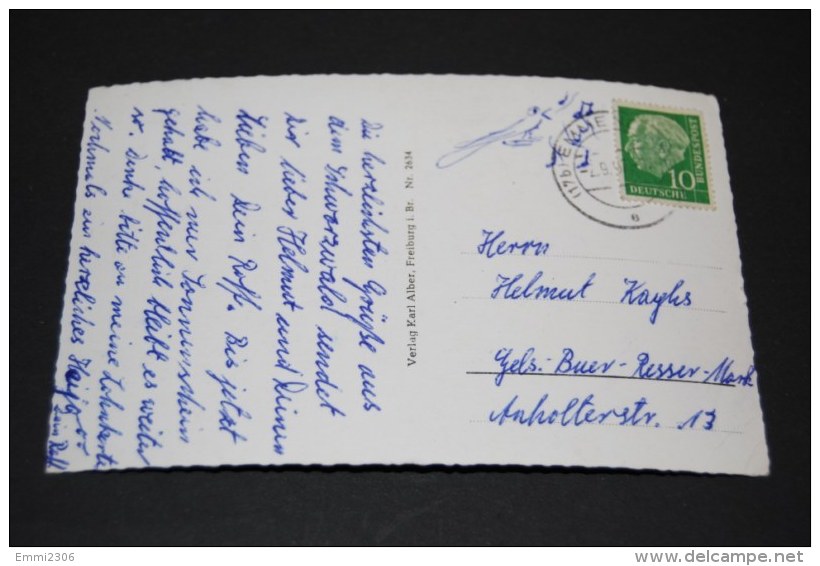 Die herzlichsten Grüße aus
dem Schwarzwald sendet
Dir lieber Helmut und Deinen
Lieben Dein Rolf. Bis jetzt
habe ich nur Sonnenschein
gehabt, hoffentlich bleibt es weiter
so. Denke bitte an meine Lohnkarte
Nochmals ein herzliches
Dein Rolf
Verlag Karl Alber, Freiburg i. Br. Nr. 2634
(17b)
DEUTSCHE
BUNDESPOST
10
Herrn
Helmut Kayhs
Gels.-Buer-Resser-Mark
Anholterstr. 13
Emmi2306
delcampe.net